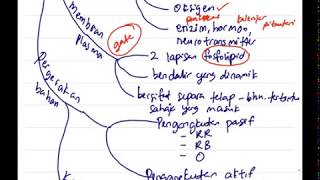 oksigen
enzim, hormon,
neurotransmitter
membran
plasma
gate
2 lapisan fosfolipid
bendalir yang dinamik
bersifat separa telap - bhn. tertentu
sahaja yang masuk
Pergerakan
bahan
Pengangkutan pasif
- RR
- RB
- O
Pengangkutan aktif